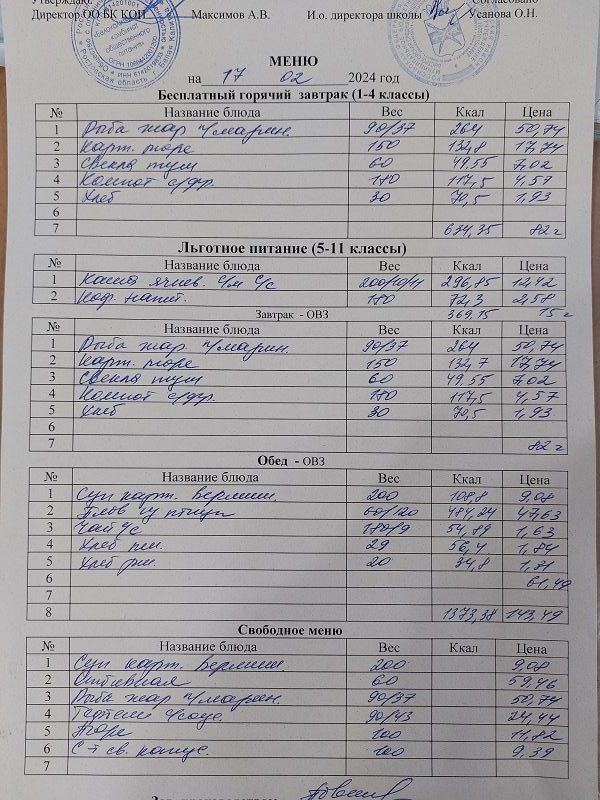 Утверждаю: Согласовано
Директор ОО БК КОП Максимов А.В. И.о. директора школы Усанова О.Н.
МЕНЮ
на 17 02 2024 год
Бесплатный горячий завтрак (1-4 классы)
№ Название блюда Вес Ккал Цена
1 Рыба жар п/марин. 90/37 264 50,74
2 Карт. пюре 150 132,8 17,74
3 Свекла туш 60 49,55 7,02
4 Компот с/фр. 180 117,5 4,57
5 Хлеб 30 70,5 1,93
6
7 634,35 82=
Льготное питание (5-11 классы)
№ Название блюда Вес Ккал Цена
1 Каша ячнев. с/м с/с 200/10/11 296,85 12,42
2 Коф. напит. 180 72,3 2,58
Завтрак - ОВЗ 369,15 15=
№ Название блюда Вес Ккал Цена
1 Рыба жар п/марин. 90/37 264 50,74
2 Карт. пюре 150 132,7 17,74
3 Свекла туш 60 49,55 7,02
4 Компот с/фр. 180 117,5 4,57
5 Хлеб 30 70,5 1,93
6
7 82=
Обед - ОВЗ
№ Название блюда Вес Ккал Цена
1 Суп карт. вермиш. 200 108,8 9,08
2 Плов из птицы 60/120 484,24 47,63
3 Чай с/с 180/9 54,89 1,63
4 Хлеб пш. 29 56,4 1,84
5 Хлеб рж. 20 34,8 1,31
6 61,49
7
8 1373,38 143,49
Свободное меню
№ Название блюда Вес Ккал Цена
1 Суп карт. вермиш. 200 9,08
2 Отбивная 60 59,46
3 Рыба жар п/марин. 90/37 50,74
4 Тефтели с/соус. 90/43 24,44
5 Пюре 100 11,82
6 С-т св. капус. 100 9,39
7
Зав. производством